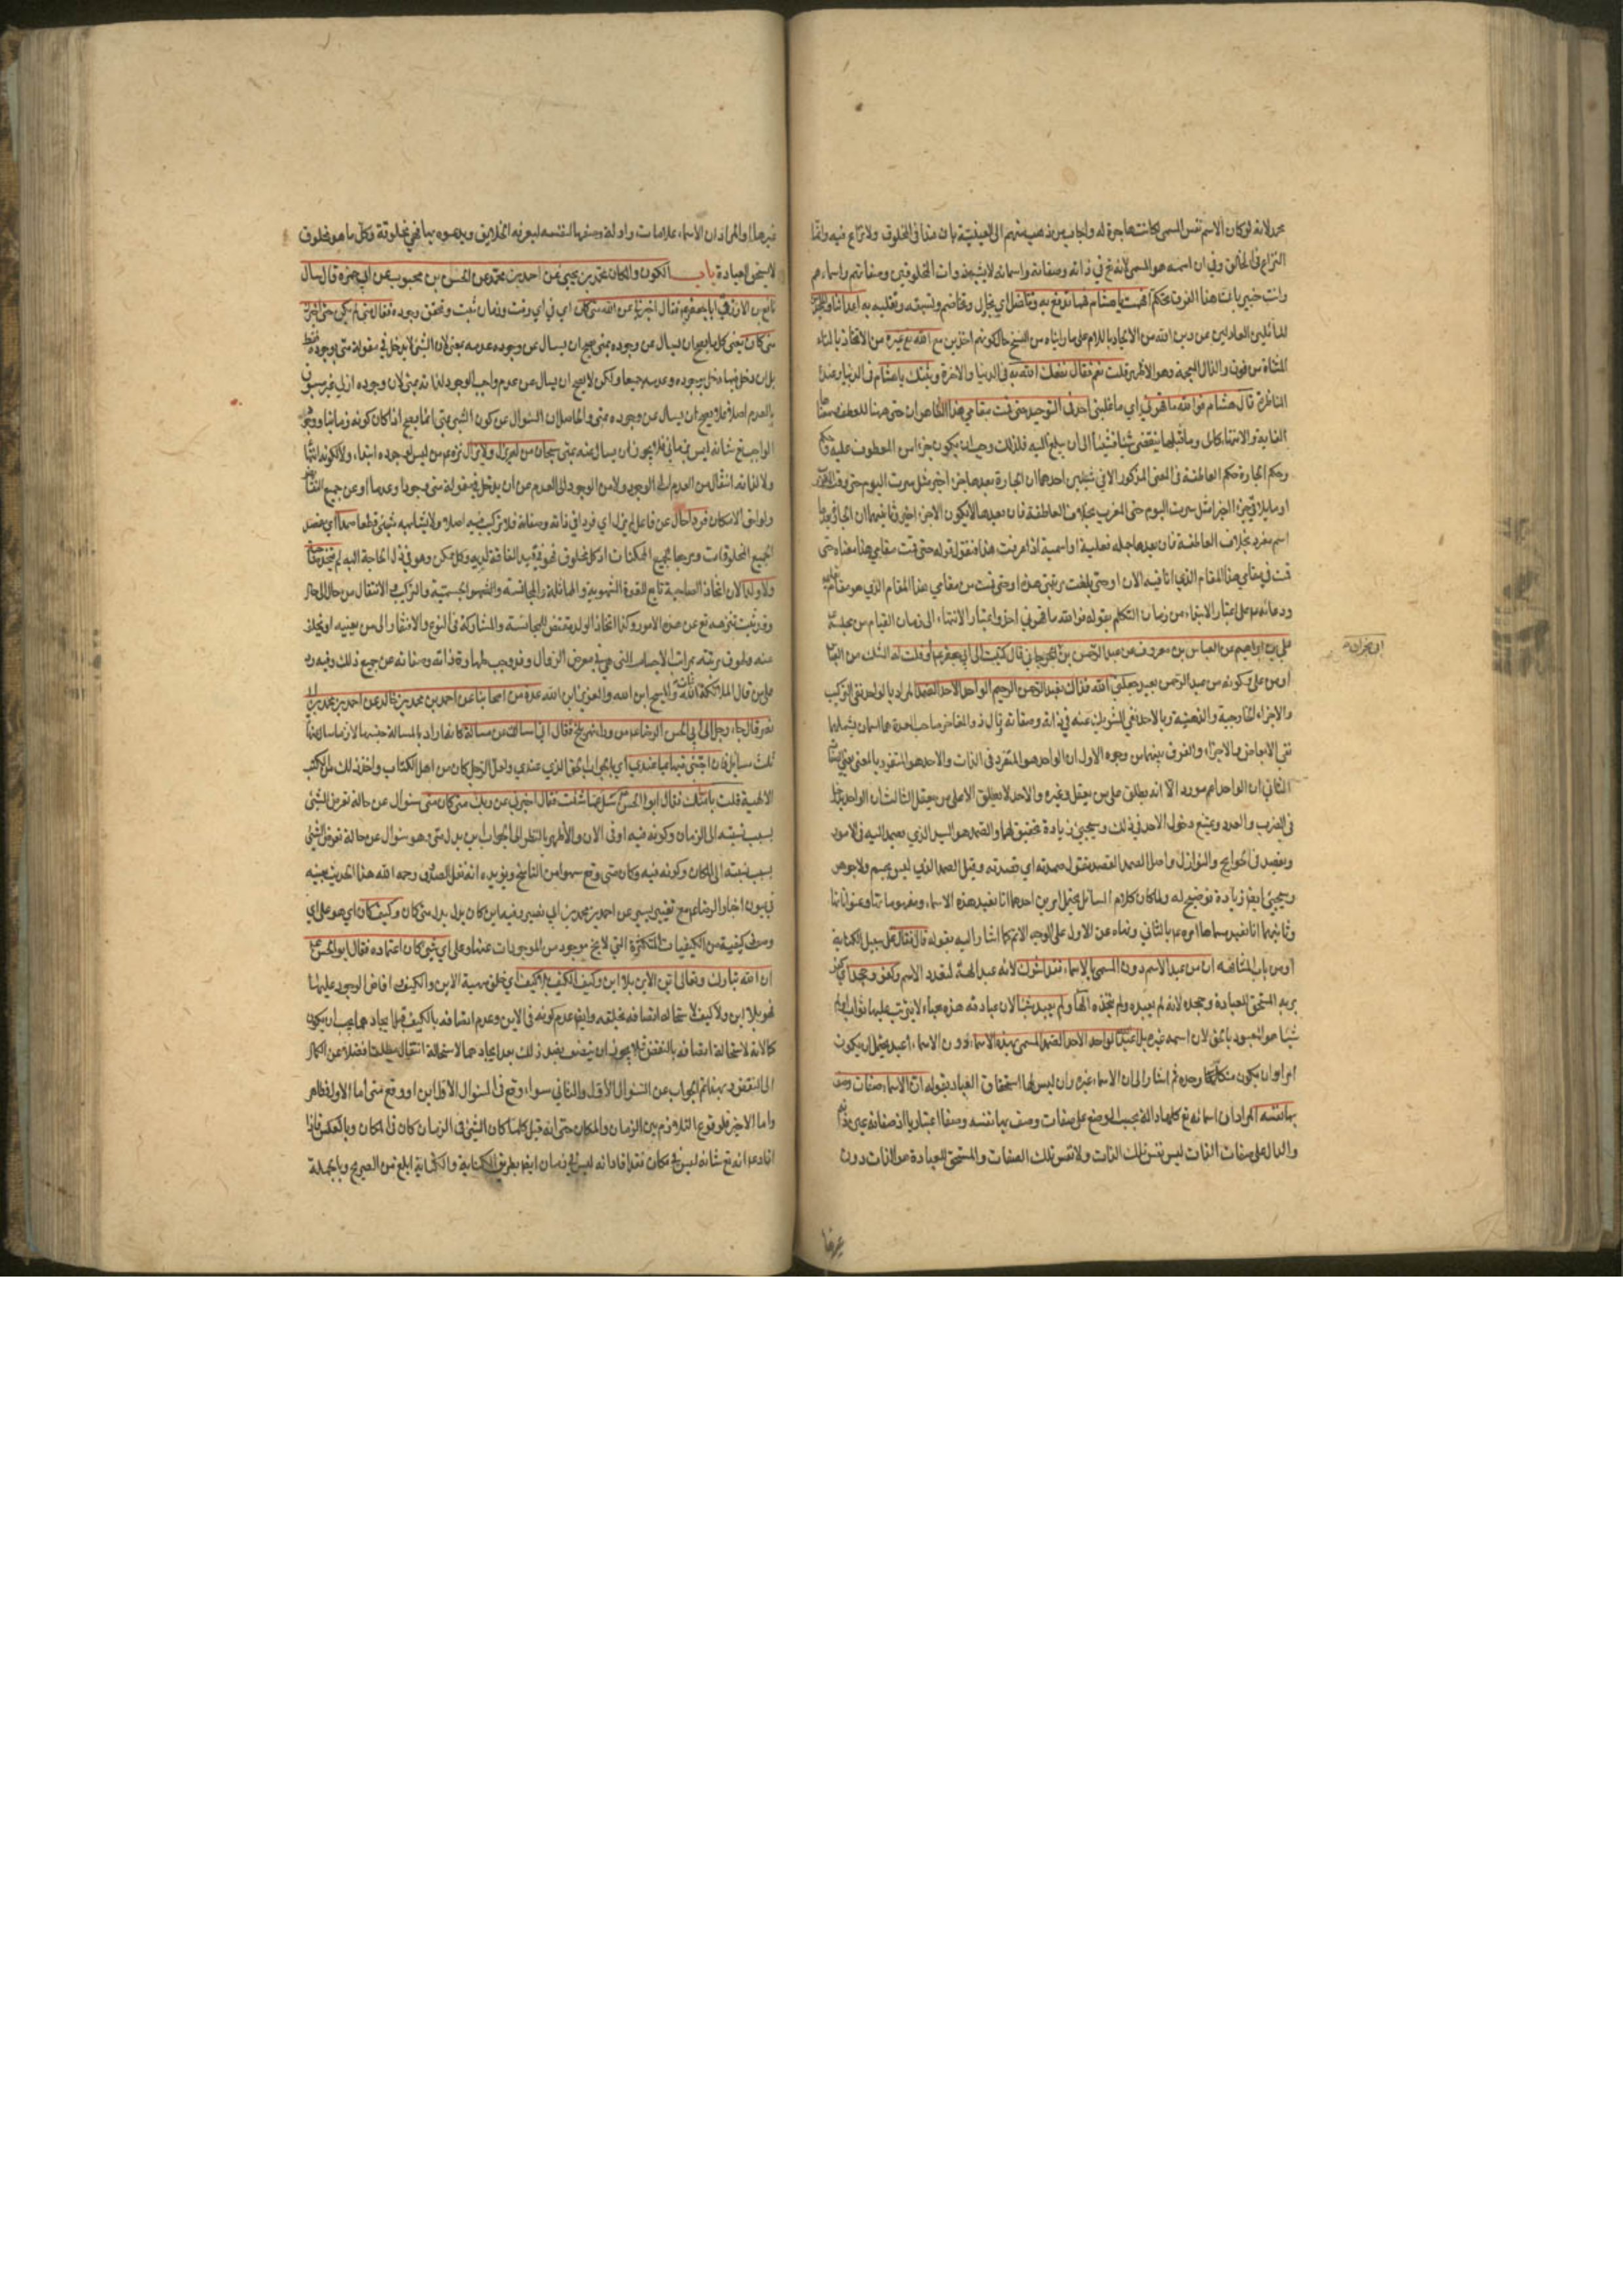 محرلانه لو كان الاسم نفس المسمى لكانت هاجرة له
النزاع في الخالق وفي ان اسمه هو المسمى لانه تع في ذاته وصفاته واسمائه لا يشبه ذوات المخلوقين وصفاتهم واسماءهم
وانت خبير بان هذا الفرق تحكم افهمت يا هشام فهما تدفع به وتناضل اي يجادل ويخاصم به اعداءنا
المائلين العادلين عن دين الله من الالحاد باللام على ما رايناه من النسخ حال كونهم اخذين مع الله تع غيره من الاتخاذ بالتاء
المثناة من فوق والذال المعجمة وهو الاظهر قلت نعم فقال نفعك الله به في الدنيا والاخرة وثبتك يا هشام في الدنيا وعند
المناظرة قال هشام فوالله ما قهرني اي ما غلبني احد في التوحيد حتى قمت مقامي هذا الظاهر ان حتى هنا للعطف
الغاية والانتهاء كالى وما قبلها ينقضي شيئا فشيئا الى ان يبلغ اليه فلذلك وجب ان يكون جزءا من المعطوف عليه
وحكم الجارة حكم العاطفة في المعنى المذكور الا في شيئين احدهما ان الجارة بعدها جزء اخير مثل سرت اليوم حتى
اسم مفرد بخلاف العاطفة فان بعدها جملة فعلية او اسمية اذا عرفت هذا فنقول قوله حتى قمت مقامي هذا معناه حتى
قمت في مقامي هذا المقام الذي انا فيه الان او حتى بلغت مرتبتي هذه او حتى قمت من مقامي هذا المقام الذي هو مقام
علي بن ابراهيم عن العباس بن معروف عن عبد الرحمن بن ابي نجران قال كتبت الى ابي جعفر ع او قلت له الشك من
جعلني الله فداك نعبد الرحمن الرحيم الواحد الاحد الصمد المراد بالواحد نفي التركيب
والاجزاء الخارجية والذهنية وبالاحد نفي الشريك عنه في ذاته وصفاته
نفي الابعاض والاجزاء والفرق بينهما من وجوه الاول ان الواحد هو المتفرد في الذات والاحد هو المتفرد بالمعنى
الثاني ان الواحد اعم موردا لانه يطلق على من يعقل وغيره والاحد لا يطلق الا على من يعقل الثالث ان الواحد يدخل
في الضرب والعدد ويمتنع دخول الاحد في ذلك وسيجيء زيادة تحقيق لهما والصمد هو السيد الذي يصمد اليه في الامور
ويقصد في الحوايج والنوازل واصل الصمد القصد تقول صمدته اي قصدته وقيل الصمد الذي ليس بجسم ولا جوهر
وسيجيء ايضا زيادة توضيح له ولما كان كلام السائل يحتمل امرين احدهما انا نعبد هذه الاسماء
وثانيهما انا نعبد مسماها امره ع بالثاني ونهاه عن الاول على الوجه الاتم كما اشار اليه بقوله قال فقال
ان من عبد الاسم دون المسمى بالاسماء فقد اشرك لانه عبد الهة لتعدد الاسم وكفر وجحد
بربه المستحق للعبادة وجحده لانه لم يعبده ولم يتخذه الها ولم يعبد شيئا لان عبادته هذه هباء لا يترتب عليها ثواب
شيئا هو المعبود بالحق لان اسمه غيره بل اعبد الله الواحد الاحد الصمد المسمى بهذه الاسماء دون الاسماء اعبد يحتمل ان يكون
امرا وان يكون متكلما وحده ثم اشار الى ان الاسماء غيره وان ليس لها استحقاق العباد بقوله ان الاسماء صفات وصف
بها نفسه المراد ان اسمائه تع كلها دالة بحسب الوضع على صفات وصف بها نفسه وصفا اعتباريا اذ صفاته عين ذاته
والدال على صفات الذات ليس نفس تلك الذات ولا نفس تلك الصفات والمستحق للعبادة هو الذات دون
غيرها
غيرها والمراد ان الاسماء علامات وادلة وصفها لنفسه ليعرفه الخلايق ويدعوه بها فهي مخلوقة وكل ما هو مخلوق
لا يستحق العبادة باب الكون والمكان محمد بن يحيى عن احمد بن محمد عن الحسن بن محبوب عن ابي حمزة قال سال
نافع بن الازرق ابا جعفر ع فقال اخبرني عن الله متى كان اي في اي وقت وزمان ثبت وتحقق وجوده فقال متى لم يكن حتى اخبرك
متى كان يعني كل ما يصح ان يسال عن وجوده بمتى يصح ان يسال عن وجوده عدمه بمتى لان الشيء لا يدخل في مقولة متى بوجوده فقط
بل ان دخل فيها دخل بوجوده وعدمه جميعا ولكن لا يصح ان يسال عن عدم واجب الوجود لذاته بمتى لان وجوده ازلي غير مسبوق
بالعدم اصلا فلا يصح ان يسال عن وجوده بمتى والحاصل ان السؤال عن كون الشيء بمتى انما يصح اذا كان كونه زمانيا
الواجب تع شانه ليس بزماني فلا يجوز ان يسال عنه بمتى سبحان من لم يزل ولا يزال نزه ع من ليس لوجوده ابتداء ولا لكونه انتهاء
ولا لذاته انتقال من العدم الى الوجود ولا من الوجود الى العدم عن ان يدخل في مقولة متى وجودا وعدما وعن جميع
ولواحق الامكان فردا حال عن فاعل لم يزل اي فردا في ذاته وصفاته فلا تركيب فيه اصلا ولا يشابهه شيء قطعا صمدا اي مقصد
لجميع المخلوقات ومرجعا لجميع الممكنات اذ كل مخلوق فهو يمد يد الفاقة لديه وكل ممكن وهو في ذل الحاجة اليه لم يتخذ صاحبة
ولا ولدا لان اتخاذ الصاحبة تابع للقوة الشهوية والمماثلة والمجانسة والشهوة الجسمية والتركيب والانتقال من حال الى حال
وقد ثبت تنزهه تع عن هذه الامور وكذا اتخاذ الولد يقتضي المجانسة والمشاركة في النوع والافتقار الى من يعينه او يخلد
علي من قال الملائكة بنات الله والمسيح ابن الله والعزير ابن الله عدة من اصحابنا عن احمد بن محمد بن خالد عن احمد بن محمد بن ابي
نصر قال جاء رجل الى ابي الحسن الرضا ع من وراء نهر بلخ فقال اني اسالك عن مسالة
ثلث مسائل فان اجبتني فيها بما عندي اي بالجواب الحق الذي عندي ولعل الرجل كان من اهل الكتاب واخذ ذلك من الكتب
الالهية قلت بامامتك فقال ابو الحسن ع سل عما شئت فقال اخبرني عن ربك متى كان متى سؤال عن حالة تعرض للشيء
بسبب نسبته الى الزمان وكونه فيه او في الان والاظهر بالنظر الى الجواب اين بدل متى وهو سؤال عن حالة تعرض للشيء
بسبب نسبته الى المكان وكونه فيه وكان متى وقع سهوا من الناسخ ويؤيده انه نقل الصدوق رحمه الله هذا الحديث بعينه
في عيون اخبار الرضا ع مع تغيير يسير عن احمد بن محمد بن ابي نصر وفيه اين كان بدل متى كان وكيف كان اي هو على اي
وصف وكيفية من الكيفيات المتكثرة التي لا يخ موجود من الموجودات عنها وعلى اي شيء كان اعتماده فقال ابو الحسن ع
ان الله تبارك وتعالى اين الاين بلا اين وكيف الكيف بلا كيف اي خلق مهية الاين والكيف وافاض الوجود عليهما
فهو بلا اين ولا كيف لاستحالة اتصافه بخلقه وايضا عدم كونه في الاين وعدم اتصافه بالكيف قبل ايجادهما يجب ان يكون
كمالا له لاستحالة اتصافه بالنقص فلا يجوز ان يتصف بضد ذلك بعد ايجادهما لاستحالة انتقاله مطلقا فضلا عن الكمال
الى النقص وبهذا تم الجواب عن السؤال الاول والثاني سواء وقع في السؤال الاول اين او وقع متى اما الاول فظاهر
واما الاخير فلوقوع التلازم بين الزمان والمكان حتى انه قيل كلما كان الشيء في الزمان كان في المكان وبالعكس فاذا
افاد ع انه تع شانه ليس في مكان فقد افاد انه ليس في زمان ايضا بطريق الكناية والكناية ابلغ من الصريح وبالجملة